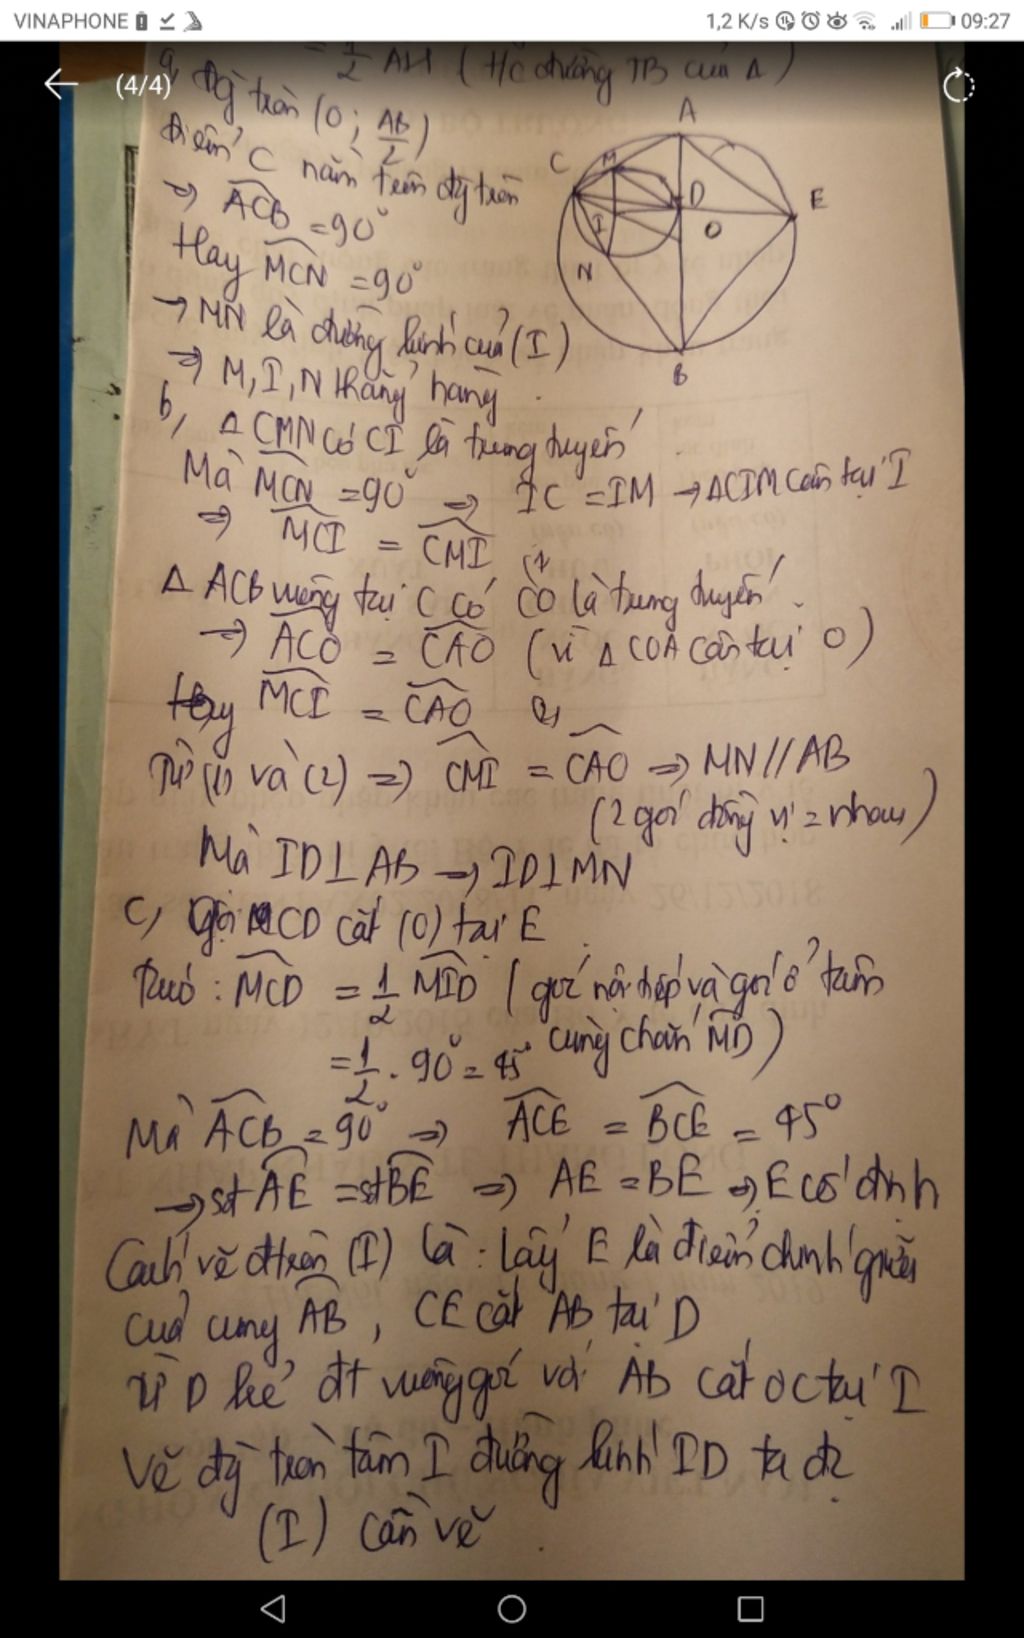 VINAPHONE
1,2 K/s 09:27
(4/4)
= 1/2 AH (HC đường TB của Δ)
a, Đg tròn (O; AB/2)
Điểm C nằm trên đg tròn
=> ACB = 90°
Hay MCN = 90°
→ MN là đường kính của (I)
=> M, I, N thẳng hàng.
A
C
M
D
E
I
O
N
B
b, Δ CMN có CI là trung tuyến
Mà MCN = 90° => IC = IM → ΔCIM cân tại I
=> MCI = CMI (1)
Δ ACB vuông tại C có CO là trung tuyến.
→ ACO = CAO (vì Δ COA cân tại O)
Hay MCI = CAO (2)
Từ (1) và (2) => CMI = CAO => MN // AB
(2 góc đồng vị = nhau)
Mà ID ⊥ AB → ID ⊥ MN
c, Gọi CD cắt (O) tại E
Ta có: MCD = 1/2 MID (góc nội tiếp và góc ở tâm
cùng chắn MD)
= 1/2 . 90° = 45°
Mà ACB = 90° => ACE = BCE = 45°
→ sđ AE = sđ BE => AE = BE → E cố định
Cách vẽ đtròn (I) là: lấy E là điểm chính giữa
của cung AB, CE cắt AB tại D
Từ D kẻ đt vuông góc với AB cắt OC tại I
Vẽ đg tròn tâm I đường kính ID ta đc
(I) cần vẽ.